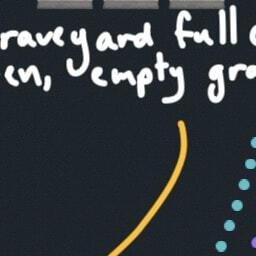 raveyard full o
en, empty gra